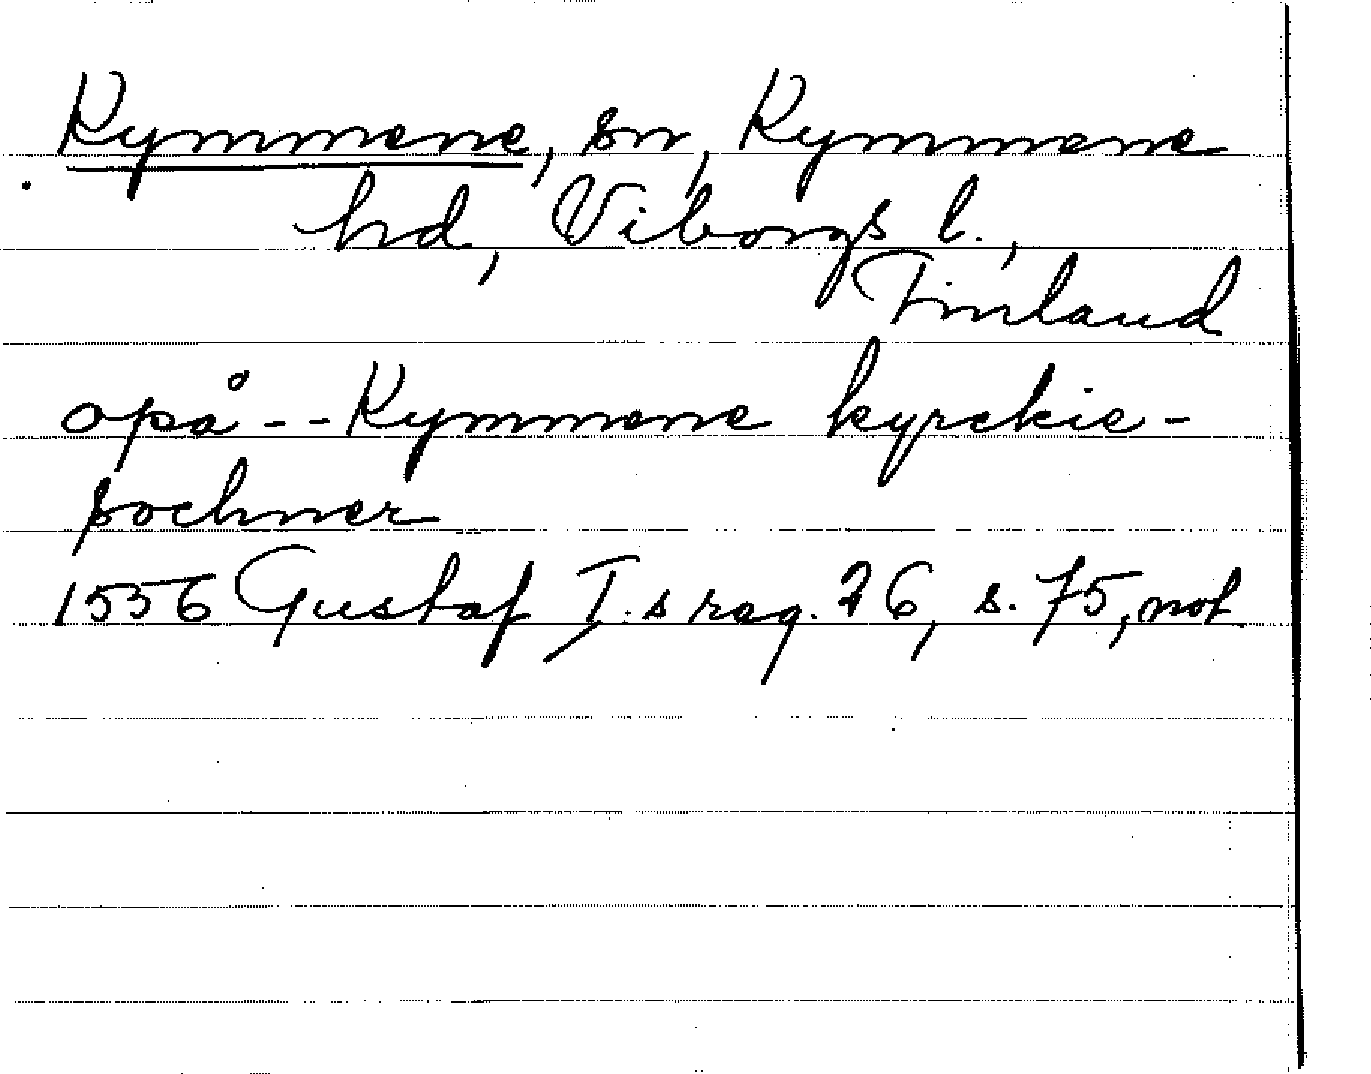 Kymmene, sn, Kymmene
hd, Viborgs l.,
Finland
opå -- Kymmene kyrckie-
sochner
1556 Gustaf I:s reg. 26, s. 75, not